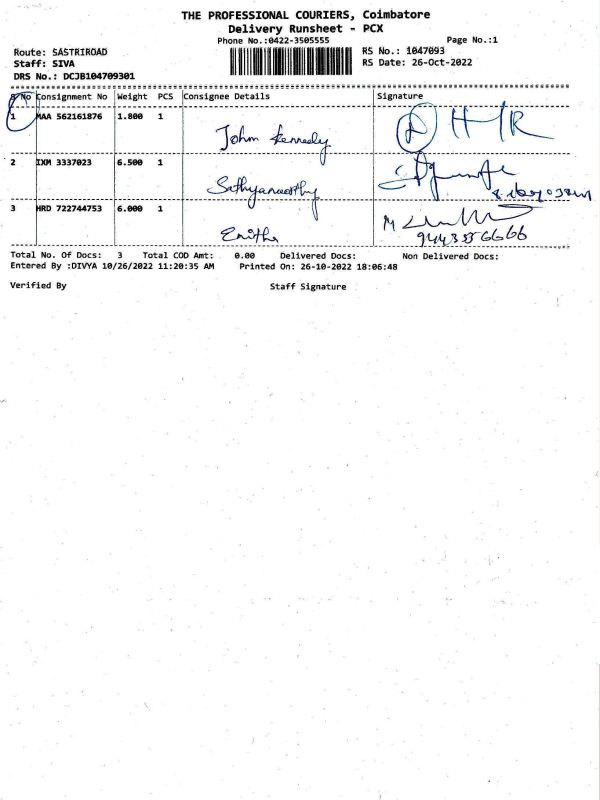 THE PROFESSIONAL COURIERS, Coimbatore
Delivery Runsheet - PCX
Phone No.:0422-3505555
Page No.:1
Route: SASTRIROAD
RS No.: 1047093
Staff: SIVA
RS Date: 26-Oct-2022
DRS No.: DCJB104709301
S No Consignment No Weight PCS Consignee Details Signature
1 MAA 562161876 1.800 1 John Kennedy
2 IXM 3337023 6.500 1 Sathyamoorthy
3 HRD 722744753 6.000 1 Enitha
Total No. Of Docs: 3 Total COD Amt: 0.00 Delivered Docs: Non Delivered Docs:
Entered By :DIVYA 10/26/2022 11:20:35 AM Printed On: 26-10-2022 18:06:48
Verified By Staff Signature